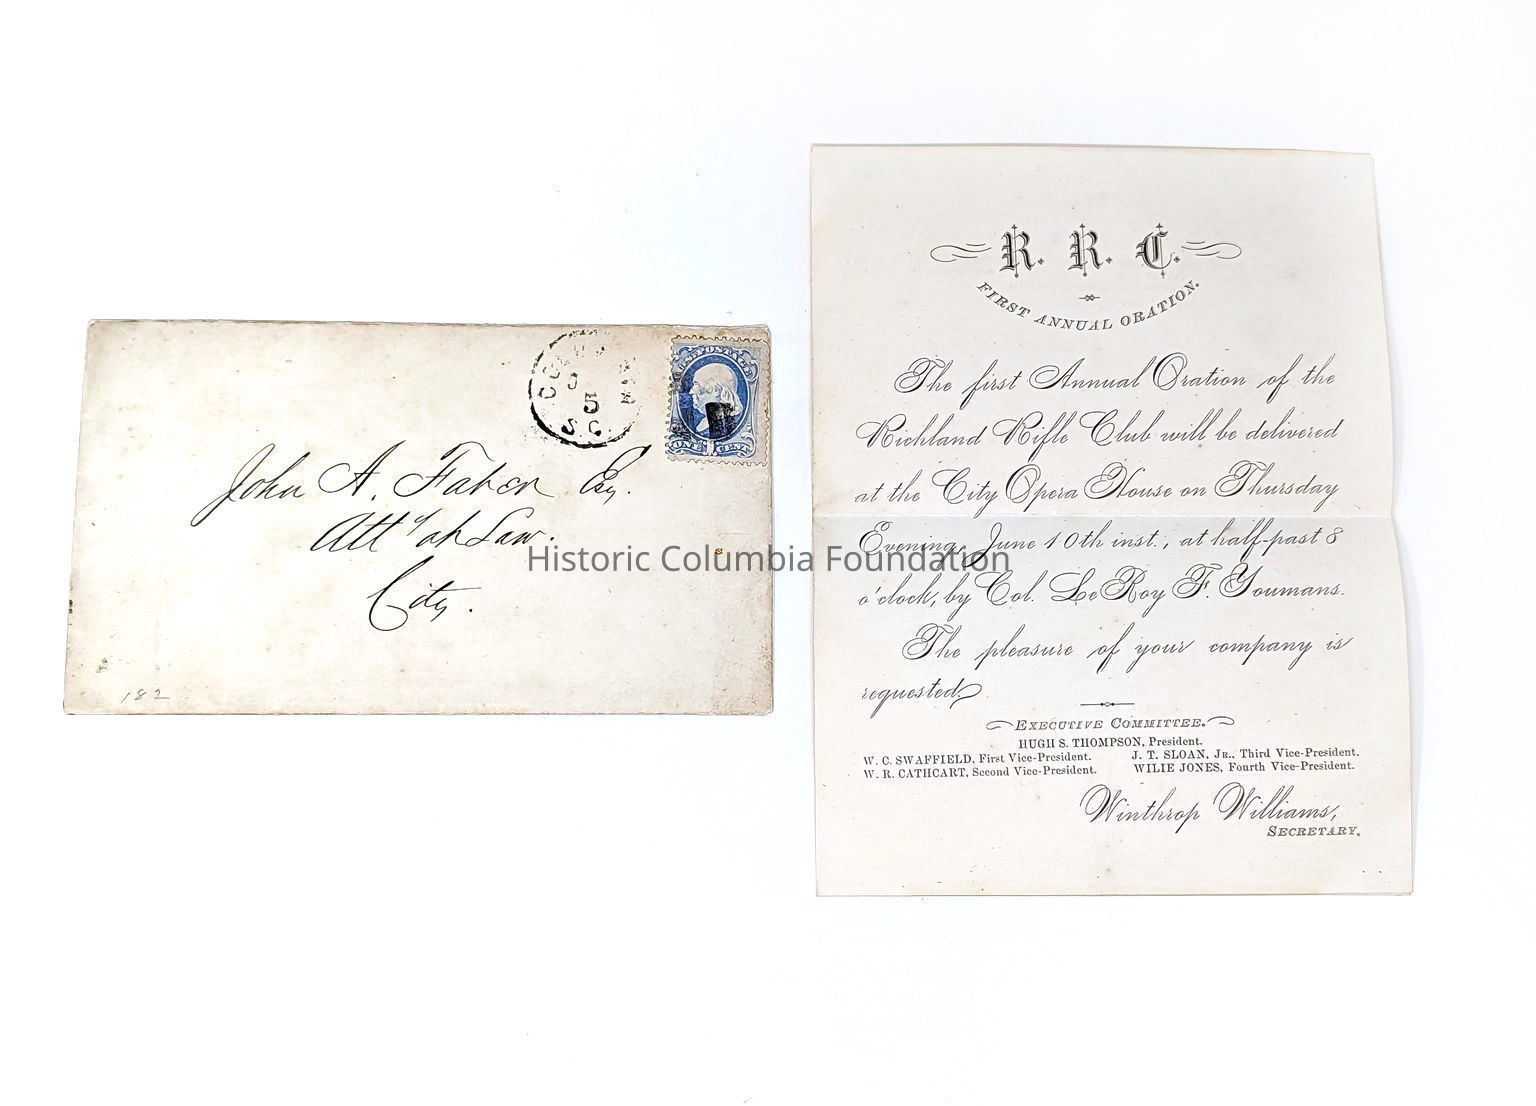 COLUMBIA
J
5
S.C.
U.S. POSTAGE
ONE 1 CENT
John A. Faber Esq.
Att'y at Law.
City.
182
R. R. C.
FIRST ANNUAL ORATION.
The first Annual Oration of the
Richland Rifle Club will be delivered
at the City Opera House on Thursday
Evening, June 10th inst., at half-past 8
o'clock, by Col. LeRoy F. Youmans.
The pleasure of your company is
requested.
EXECUTIVE COMMITTEE.
HUGH S. THOMPSON, President.
W. C. SWAFFIELD, First Vice-President. J. T. SLOAN, JR., Third Vice-President.
W. R. CATHCART, Second Vice-President. WILIE JONES, Fourth Vice-President.
Winthrop Williams,
SECRETARY.
Historic Columbia Foundation